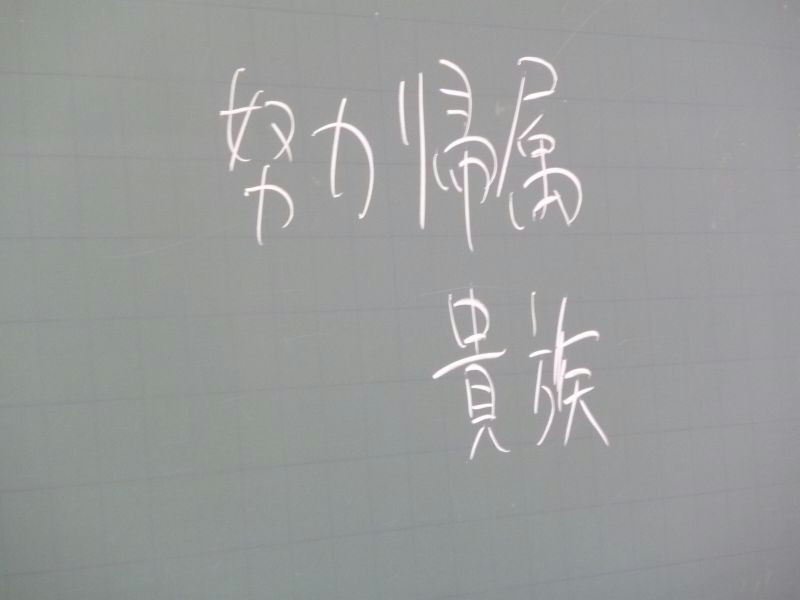 努力帰属
貴族